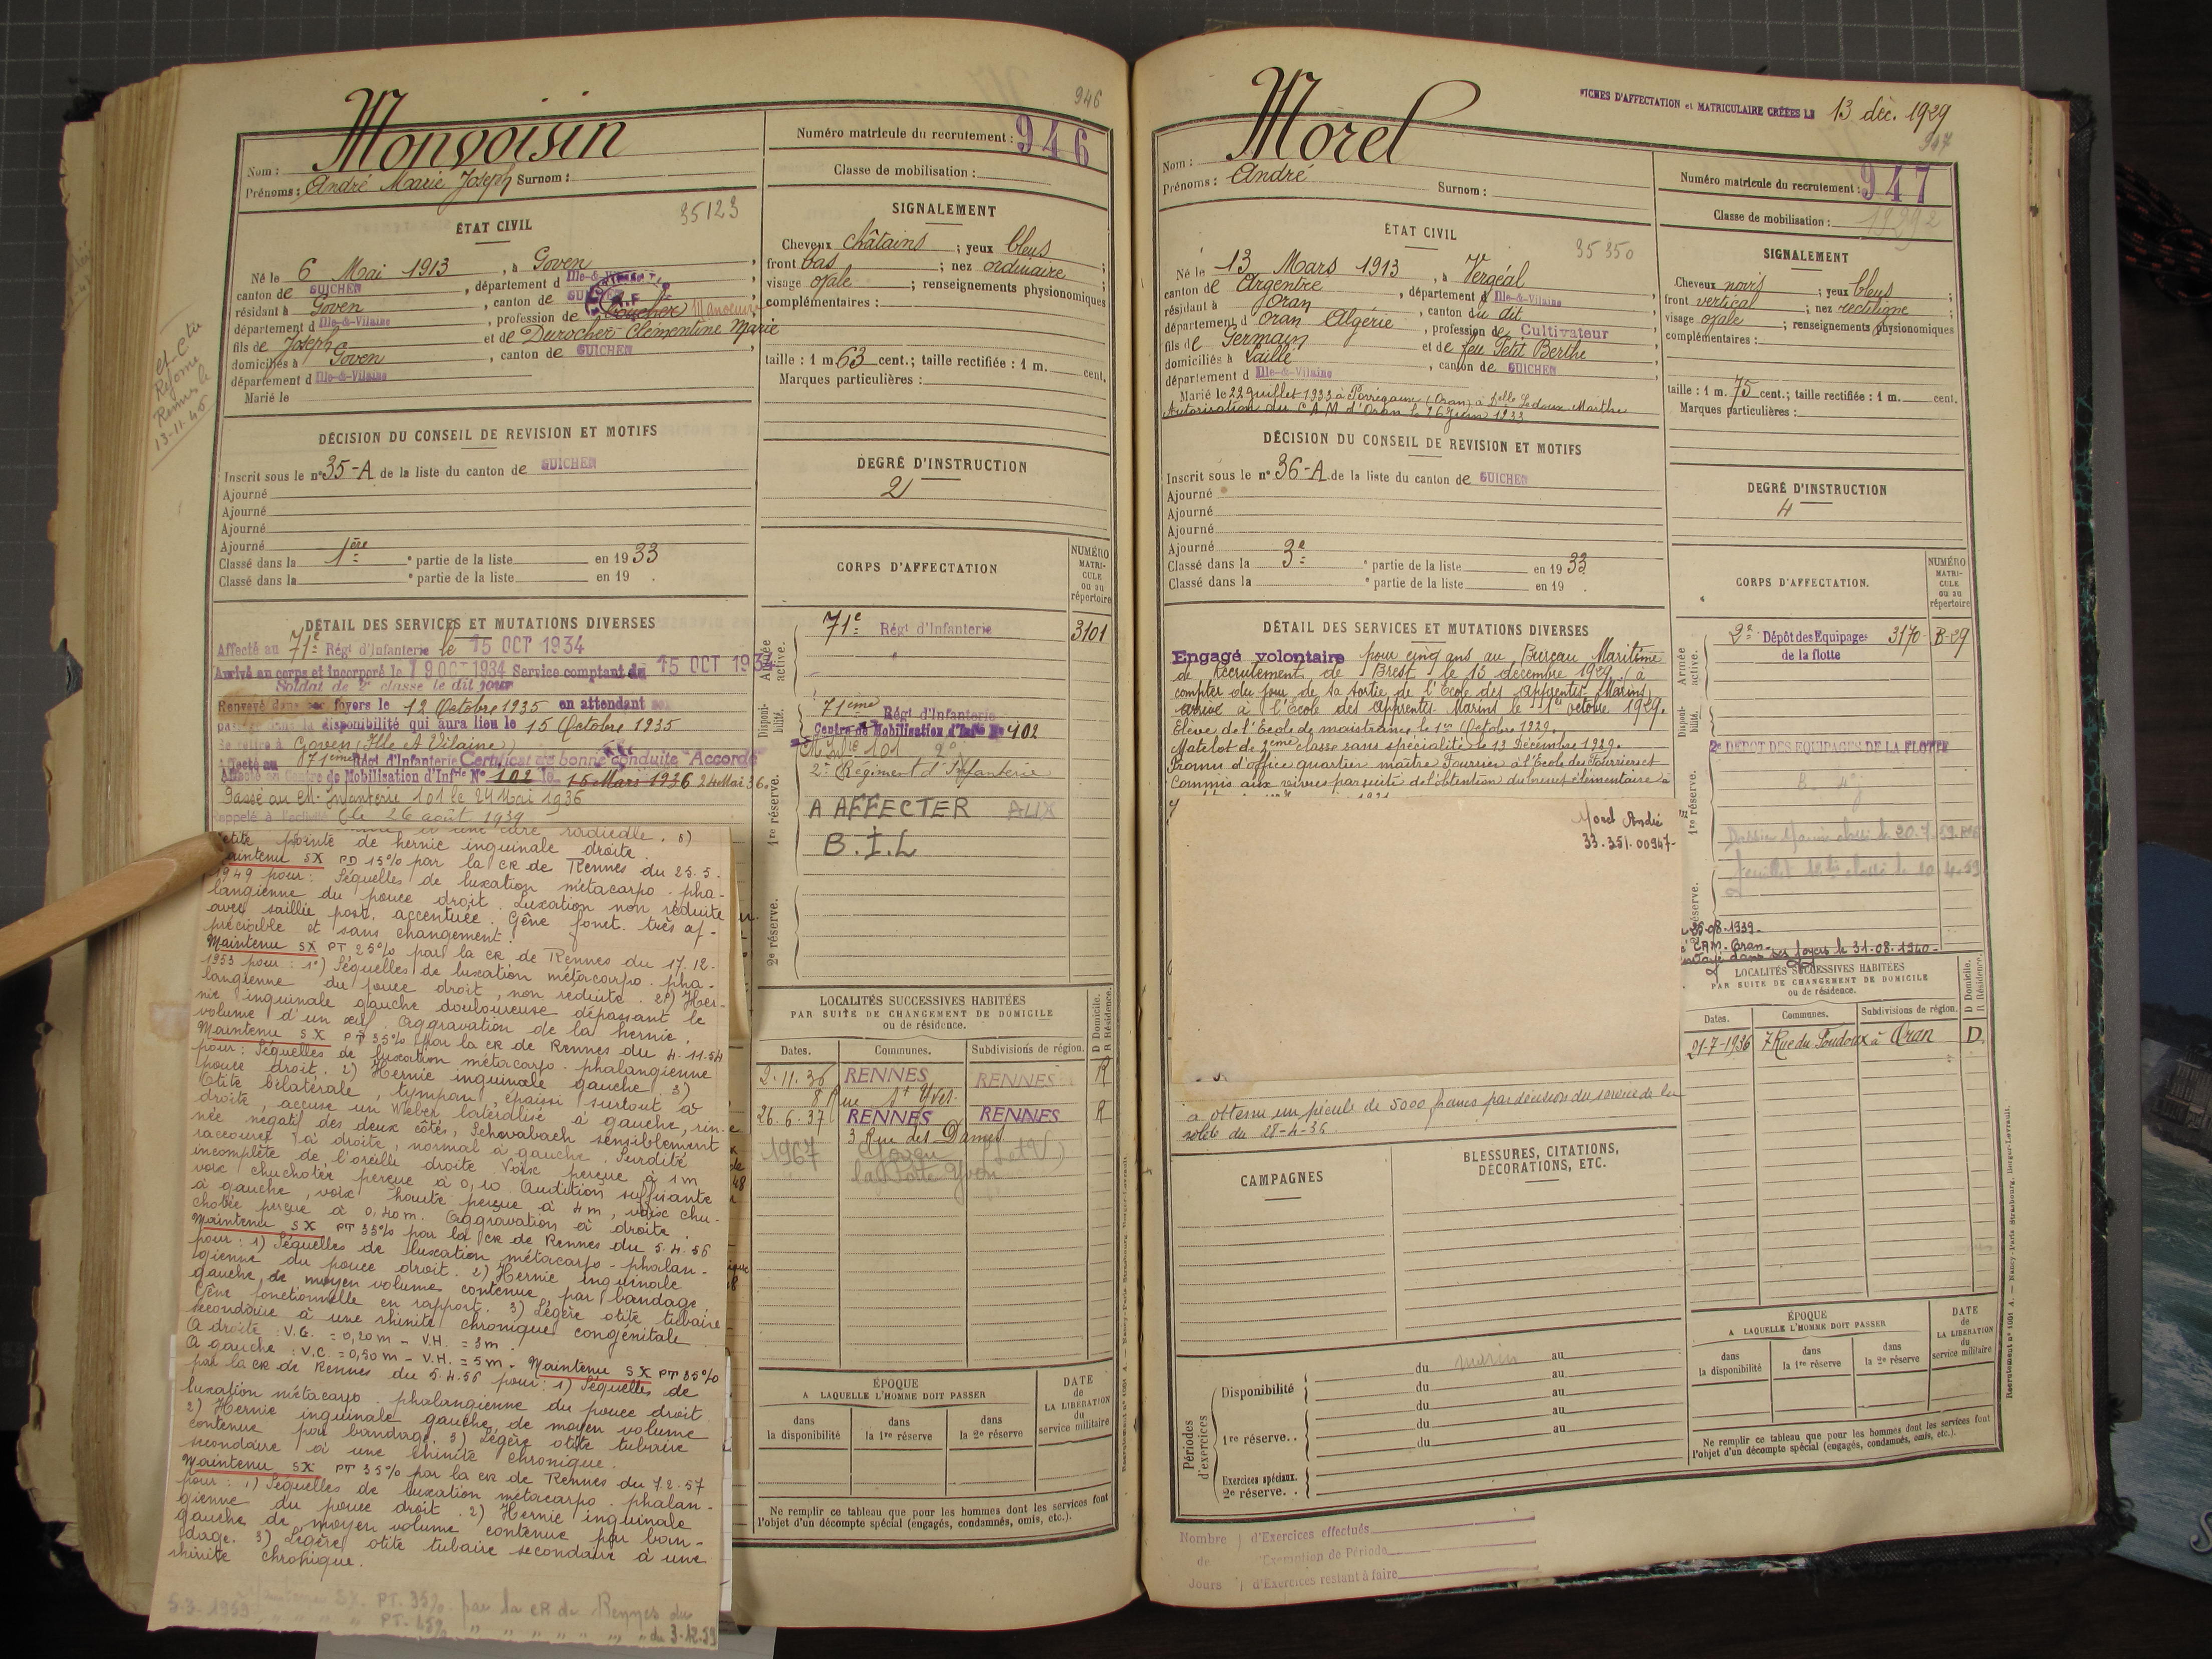 946
Nom : Monvoisin
Prénoms : André Marie Joseph Surnom :
Numéro matricule du recrutement : 946
Classe de mobilisation :
35123
ÉTAT CIVIL
Né le 6 Mai 1913, à Goven,
canton de GUICHEN, département d Ille-&-Vilaine
résidant à Goven, canton de
département d Ille-&-Vilaine, profession de
fils de Joseph et de Durocher Clémentine Marie
domiciliés à Goven, canton de GUICHEN,
département d Ille-&-Vilaine
Marié le
SIGNALEMENT
Cheveux châtains ; yeux bleus ;
front bas ; nez ordinaire
visage ovale ; renseignements physionomiques
complémentaires :
taille : 1 m 63 cent.; taille rectifiée : 1 m. cent.
Marques particulières :
Réforme
13-11-45
DÉCISION DU CONSEIL DE REVISION ET MOTIFS
Inscrit sous le n° 35-A de la liste du canton de GUICHEN
Ajourné
Ajourné
Ajourné
Ajourné
Classé dans la 1ère partie de la liste en 1933
Classé dans la partie de la liste en 19 .
DEGRÉ D'INSTRUCTION
2
DÉTAIL DES SERVICES ET MUTATIONS DIVERSES
Affecté au 71e Régt d'Infanterie le 15 OCT 1934
Arrivé au corps et incorporé le 19 OCT 1934 Service comptant du 15 OCT 1934
Soldat de 2e classe le dit jour
Renvoyé dans ses foyers le 12 Octobre 1935 en attendant
disponibilité qui aura lieu le 15 Octobre 1935
Se retire à Goven (Ille et Vilaine)
Affecté au 71eme Régt d'Infanterie Certificat de bonne conduite "Accordé"
Affecté au Centre de Mobilisation d'Infrie N° 102 le 15 Mars 1936 24 Mai 36.
Passé au C.M. Infanterie 101 le 24 Mai 1936
Rappelé à l'activité le 26 août 1939
petite pointe de hernie inguinale droite.
Maintenu SX PD 15% par la CR de Rennes du 25.5.
1949 pour : Séquelles de luxation métacarpo-pha-
langienne du pouce droit. Luxation non réduite
avec saillie post. accentuée. Gêne fonct. très ap-
préciable et sans changement.
Maintenu SX PT 25% par la CR de Rennes du 17.12.
1953 pour : 1°) Séquelles de luxation métacarpo-pha-
langienne du pouce droit, non réduite. 2°) Her-
nie inguinale gauche douloureuse dépassant le
volume d'un œuf. Aggravation de la hernie.
Maintenu SX PT 35% par la CR de Rennes du 4.11.54
pour : Séquelles de luxation métacarpo-phalangienne
pouce droit. 2) Hernie inguinale gauche. 3)
Otite bilatérale, tympan épaissi surtout à
droite, accuse un Weber latéralisé à gauche, rin-
né négatif des deux côtés, Schwabach sensiblement
raccourci à droite, normal à gauche. Surdité
incomplète de l'oreille droite. Voix perçue à 1m
voix chuchotée perçue à 0,10. Audition suffisante
à gauche, voix haute perçue à 4m, voix chu-
chotée perçue à 0,40m. Aggravation à droite.
Maintenu SX PT 35% par la CR de Rennes du 5.4.56
pour : 1) Séquelles de luxation métacarpo-phalan-
gienne du pouce droit. 2) Hernie inguinale
gauche, de moyen volume contenue par bandage.
Gêne fonctionnelle en rapport. 3) Légère otite tubaire
secondaire à une rhinite chronique congénitale
A droite : V.C. = 0,20m - V.H. = 3m.
A gauche : V.C. = 0,50m - V.H. = 5m. Maintenu SX PT 35%
par la CR de Rennes du 5.4.56 pour : 1) Séquelles de
luxation métacarpo-phalangienne du pouce droit.
2) Hernie inguinale gauche, de moyen volume
contenue par bandage. 3) Légère otite tubaire
secondaire à une rhinite chronique.
Maintenu SX PT 35% par la CR de Rennes du 7.2.57
pour : 1) Séquelles de luxation métacarpo-phalan-
gienne du pouce droit. 2) Hernie inguinale
gauche de moyen volume contenue par ban-
dage. 3) Légère otite tubaire secondaire à une
rhinite chronique.
Maintenu SX. PT. 35% par la CR de Rennes du
5.3.1959
PT. 45% " " " " " " du 3.12.59
CORPS D'AFFECTATION
NUMÉRO MATRICULE ou au répertoire
Armée active.
71e Régt d'Infanterie 3101
Disponibilité.
71eme Régt d'Infanterie
Centre de Mobilisation d'Infie N° 102
2e Régiment d'Infanterie
1re réserve.
A AFFECTER AUX
B.I.L
2e réserve.
LOCALITÉS SUCCESSIVES HABITÉES
PAR SUITE DE CHANGEMENT DE DOMICILE
ou de résidence.
D Domicile. R Résidence.
Dates. Communes. Subdivisions de région.
2-11-36 RENNES RENNES R
8 Rue St Yves
26.6.37 RENNES RENNES R
3 Rue des Dames
1967 Goven (I et V)
ÉPOQUE
A LAQUELLE L'HOMME DOIT PASSER
dans la disponibilité
dans la 1re réserve
dans la 2e réserve
DATE de LA LIBÉRATION du service militaire
Ne remplir ce tableau que pour les hommes dont les services font
l'objet d'un décompte spécial (engagés, condamnés, omis, etc.).
FICHES D'AFFECTATION et MATRICULAIRE CRÉÉES LE 13 déc. 1929
947
Nom : Morel
Prénoms : André Surnom :
Numéro matricule du recrutement : 947
Classe de mobilisation : 1929
35350
ÉTAT CIVIL
Né le 13 Mars 1913, à Vergéal
canton de Argentré, département d Ille-&-Vilaine
résidant à Oran, canton du dit
département d'Oran Algérie, profession de Cultivateur
fils de Germain et de feu Petit Berthe
domiciliés à Laillé, canton de GUICHEN
département d Ille-&-Vilaine
Marié le 22 Juillet 1933 à Perrégaux (Oran) à Delle Ledoux Marthe
Autorisation du C.A.M d'Oran le 26 Juin 1933
SIGNALEMENT
Cheveux noirs ; yeux bleus ;
front vertical ; nez rectiligne ;
visage ovale ; renseignements physionomiques
complémentaires :
taille : 1 m. 75 cent.; taille rectifiée : 1 m. cent.
Marques particulières :
DÉCISION DU CONSEIL DE REVISION ET MOTIFS
Inscrit sous le n° 36-A de la liste du canton de GUICHEN
Ajourné
Ajourné
Ajourné
Ajourné
Classé dans la 3e partie de la liste en 1933
Classé dans la partie de la liste en 19 .
DEGRÉ D'INSTRUCTION
4
DÉTAIL DES SERVICES ET MUTATIONS DIVERSES
Engagé volontaire pour cinq ans au Bureau Maritime
de Recrutement de Brest le 13 décembre 1929 (à
compter du jour de sa sortie de l'École des Apprentis Marins
arrivé à l'École des Apprentis Marins le 1er octobre 1929.
Élève de l'École de maistrance le 1er Octobre 1929.
Matelot de 2eme classe sans spécialité le 13 Décembre 1929.
Promu d'office quartier maître Fourrier à l'École des Fourriers et
Commis aux vivres par suite de l'obtention du brevet élémentaire
Morel André
33.351.00947-
a obtenu un pécule de 5000 francs par décision du service de la
solde du 28-4-36.
CORPS D'AFFECTATION.
NUMÉRO MATRICULE ou au répertoire
Armée active.
2e Dépôt des Equipages de la flotte 3170 B-29
Disponibilité.
2e DEPOT DES EQUIPAGES DE LA FLOTTE
1re réserve.
2e réserve.
26-08-1939-
CAM. Oran-
dans ses foyers le 31.08.1940-
LOCALITÉS SUCCESSIVES HABITÉES
PAR SUITE DE CHANGEMENT DE DOMICILE
ou de résidence.
D Domicile. R Résidence.
Dates. Communes. Subdivisions de région.
21-7-1936 7 Rue du Poudoux à Oran D.
CAMPAGNES
BLESSURES, CITATIONS,
DÉCORATIONS, ETC.
Périodes d'exercices
Disponibilité
du marin au
du au
du au
1re réserve. .
du au
du au
Exercices spéciaux.
2e réserve. .
ÉPOQUE
A LAQUELLE L'HOMME DOIT PASSER
dans la disponibilité
dans la 1re réserve
dans la 2e réserve
DATE de LA LIBÉRATION du service militaire
Ne remplir ce tableau que pour les hommes dont les services font
l'objet d'un décompte spécial (engagés, condamnés, omis, etc.).
Nombre de Jours
d'Exercices effectués
d'Exemption de Période
d'Exercices restant à faire
Recrutement n° 1001 A. — Nancy-Paris-Strasbourg. Berger-Levrault.